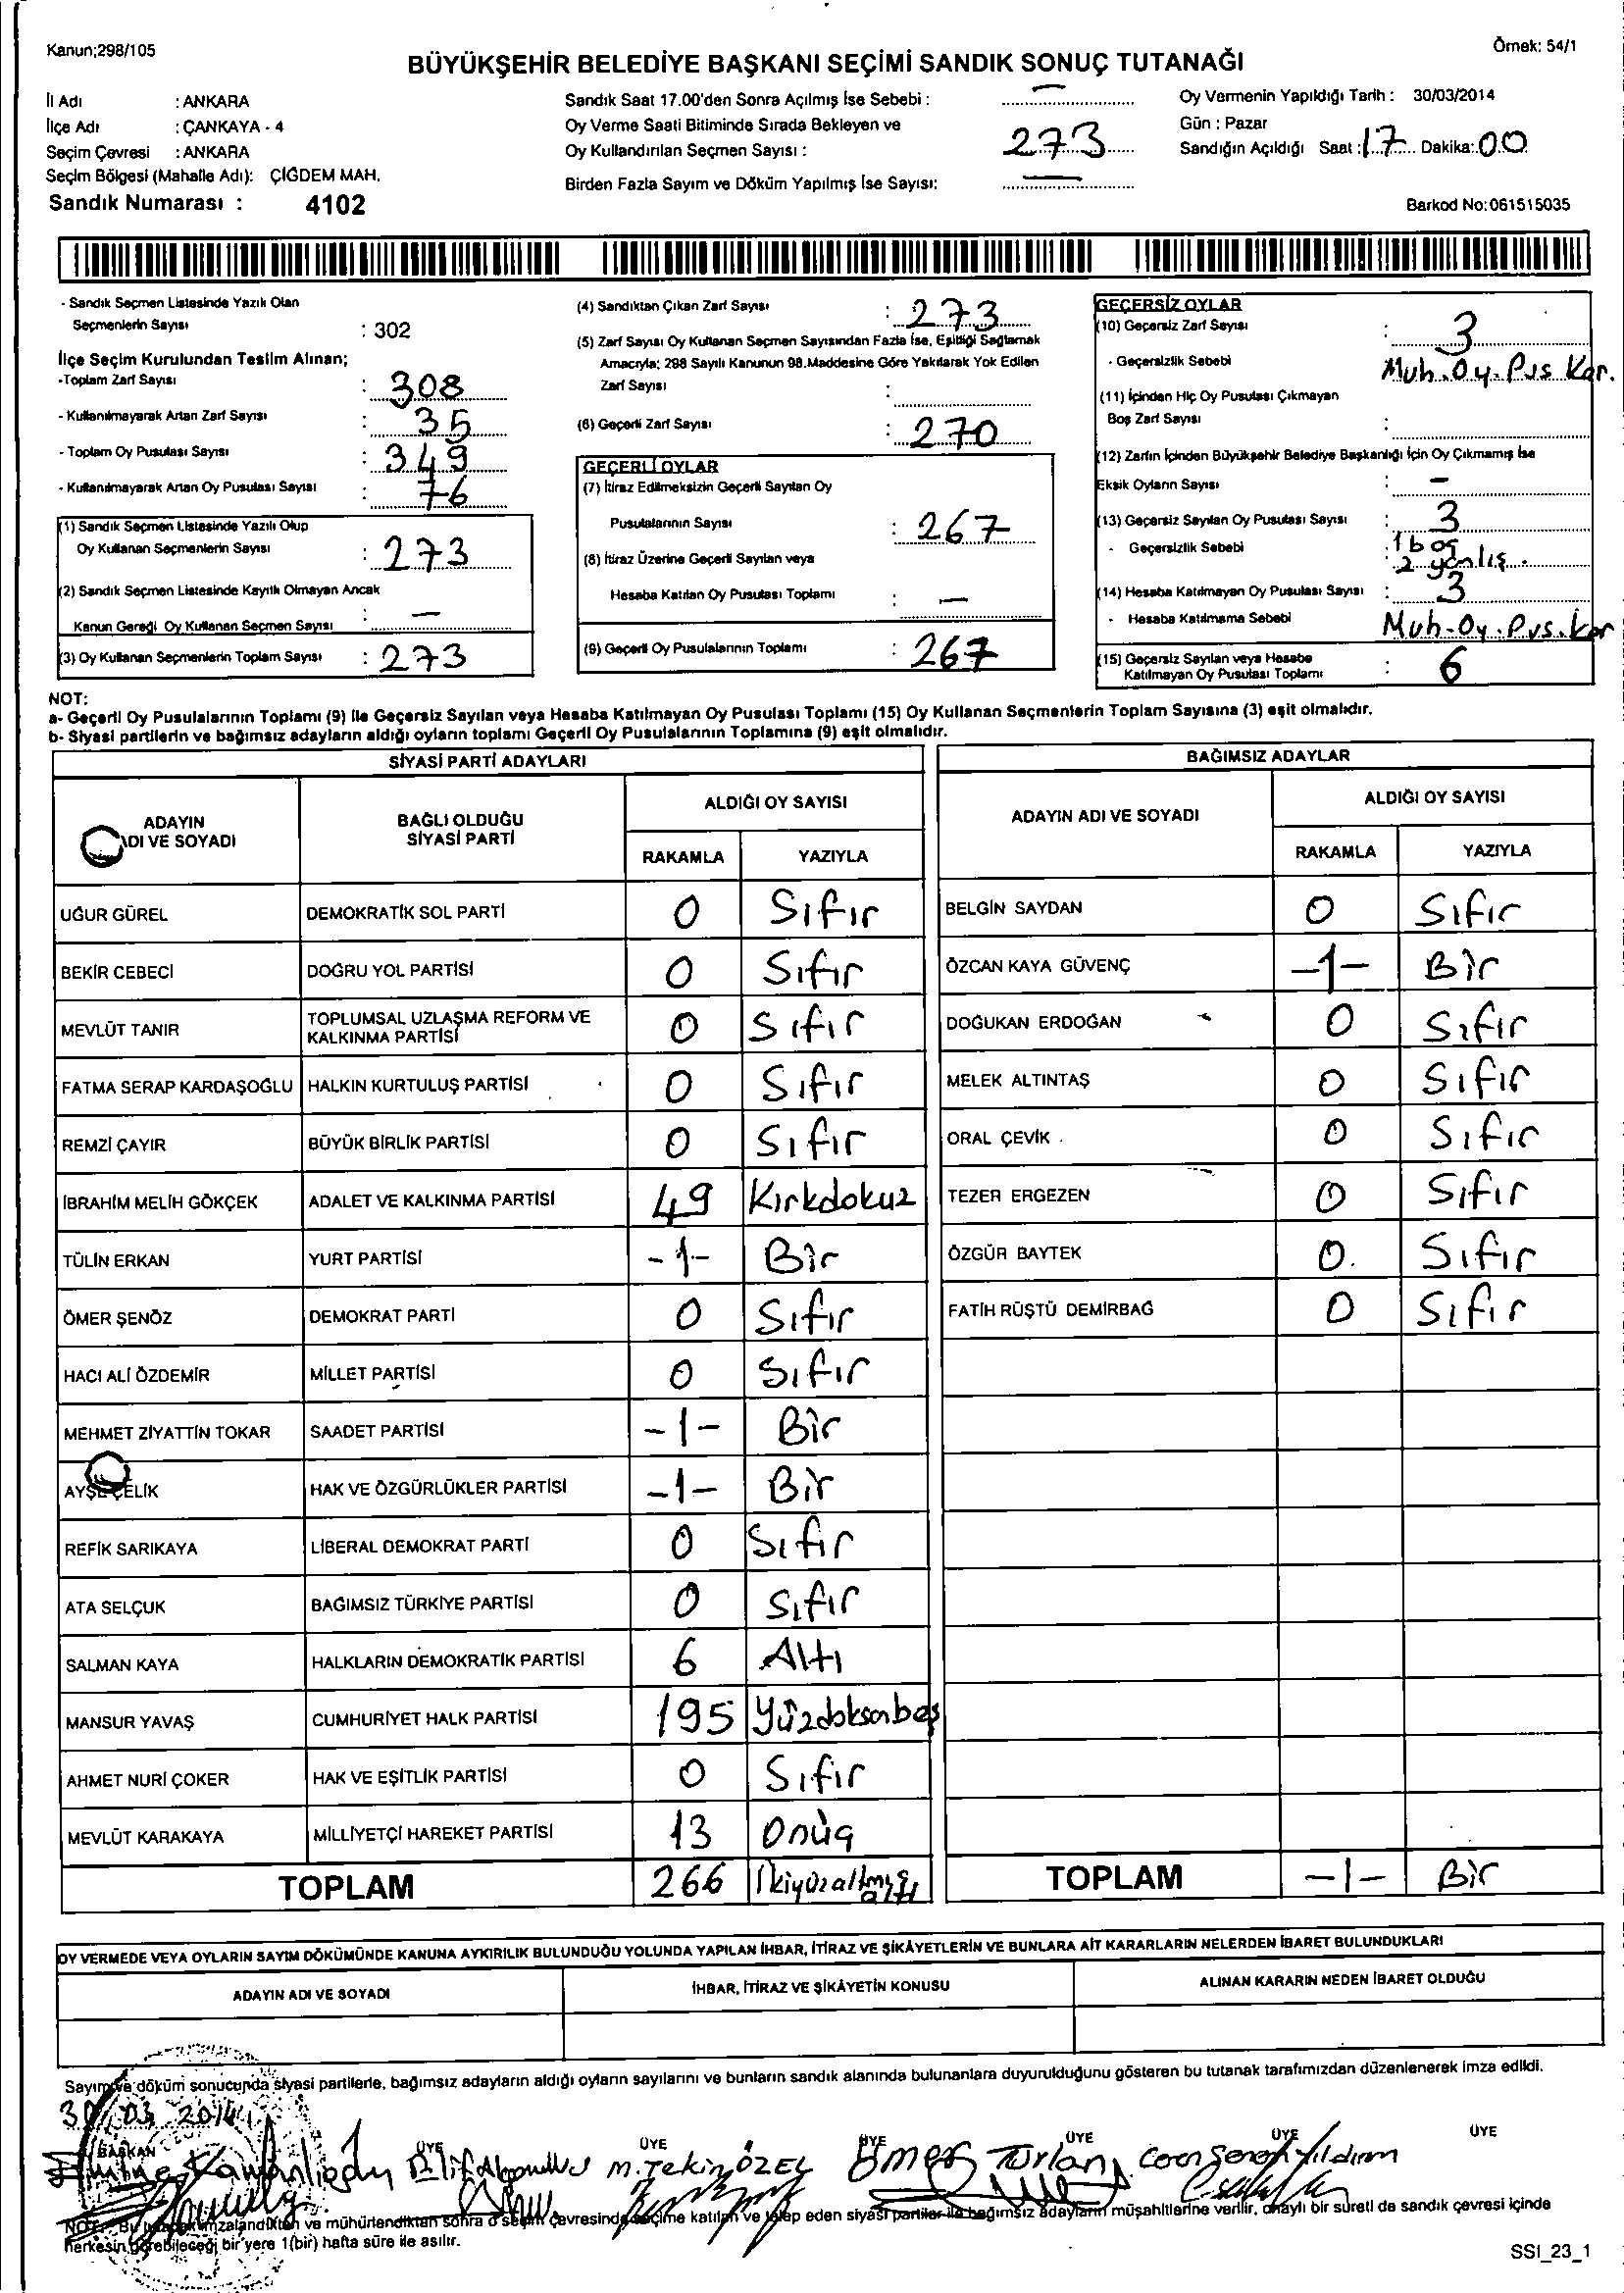 Kanun;298/105
Örnek: 54/1
BÜYÜKŞEHİR BELEDİYE BAŞKANI SEÇİMİ SANDIK SONUÇ TUTANAĞI
İl Adı : ANKARA
İlçe Adı : ÇANKAYA - 4
Seçim Çevresi : ANKARA
Seçim Bölgesi (Mahalle Adı): ÇİĞDEM MAH.
Sandık Numarası : 4102
Sandık Saat 17.00'den Sonra Açılmış İse Sebebi : —
Oy Verme Saati Bitiminde Sırada Bekleyen ve
Oy Kullandırılan Seçmen Sayısı : 273
Birden Fazla Sayım ve Döküm Yapılmış İse Sayısı: —
Oy Vermenin Yapıldığı Tarih : 30/03/2014
Gün : Pazar
Sandığın Açıldığı Saat : 17 Dakika: 00
Barkod No:061515035
- Sandık Seçmen Listesinde Yazılı Olan
Seçmenlerin Sayısı : 302
İlçe Seçim Kurulundan Teslim Alınan;
-Toplam Zarf Sayısı : 308
- Kullanılmayarak Artan Zarf Sayısı : 35
- Toplam Oy Pusulası Sayısı : 349
- Kullanılmayarak Artan Oy Pusulası Sayısı : 76
(1) Sandık Seçmen Listesinde Yazılı Olup
Oy Kullanan Seçmenlerin Sayısı : 273
(2) Sandık Seçmen Listesinde Kayıtlı Olmayan Ancak
Kanun Gereği Oy Kullanan Seçmen Sayısı : —
(3) Oy Kullanan Seçmenlerin Toplam Sayısı : 273
(4) Sandıktan Çıkan Zarf Sayısı : 273
(5) Zarf Sayısı Oy Kullanan Seçmen Sayısından Fazla İse, Eşitliği Sağlamak
Amacıyla; 298 Sayılı Kanunun 98.Maddesine Göre Yakılarak Yok Edilen
Zarf Sayısı :
(6) Geçerli Zarf Sayısı : 270
GEÇERLİ OYLAR
(7) İtiraz Edilmeksizin Geçerli Sayılan Oy
Pusulalarının Sayısı : 267
(8) İtiraz Üzerine Geçerli Sayılan veya
Hesaba Katılan Oy Pusulası Toplamı : —
(9) Geçerli Oy Pusulalarının Toplamı : 267
GEÇERSİZ OYLAR
(10) Geçersiz Zarf Sayısı : 3
- Geçersizlik Sebebi Muh. Oy. Pus Kar.
(11) İçinden Hiç Oy Pusulası Çıkmayan
Boş Zarf Sayısı :
(12) Zarfın İçinden Büyükşehir Belediye Başkanlığı İçin Oy Çıkmamış İse
Eksik Oyların Sayısı : —
(13) Geçersiz Sayılan Oy Pusulası Sayısı : 3
- Geçersizlik Sebebi : 1 boş
2 yanlış.
(14) Hesaba Katılmayan Oy Pusulası Sayısı : 3
- Hesaba Katılmama Sebebi Muh. Oy. Pus. Kar
(15) Geçersiz Sayılan veya Hesaba
Katılmayan Oy Pusulası Toplamı : 6
NOT:
a- Geçerli Oy Pusulalarının Toplamı (9) ile Geçersiz Sayılan veya Hesaba Katılmayan Oy Pusulası Toplamı (15) Oy Kullanan Seçmenlerin Toplam Sayısına (3) eşit olmalıdır.
b- Siyasi partilerin ve bağımsız adayların aldığı oyların toplamı Geçerli Oy Pusulalarının Toplamına (9) eşit olmalıdır.
SİYASİ PARTİ ADAYLARI
ADAYIN
ADI VE SOYADI
BAĞLI OLDUĞU
SİYASİ PARTİ
ALDIĞI OY SAYISI
RAKAMLA YAZIYLA
UĞUR GÜREL DEMOKRATİK SOL PARTİ 0 Sıfır
BEKİR CEBECİ DOĞRU YOL PARTİSİ 0 Sıfır
MEVLÜT TANIR TOPLUMSAL UZLAŞMA REFORM VE
KALKINMA PARTİSİ 0 Sıfır
FATMA SERAP KARDAŞOĞLU HALKIN KURTULUŞ PARTİSİ 0 Sıfır
REMZİ ÇAYIR BÜYÜK BİRLİK PARTİSİ 0 Sıfır
İBRAHİM MELİH GÖKÇEK ADALET VE KALKINMA PARTİSİ 49 Kırkdokuz
TÜLİN ERKAN YURT PARTİSİ -1- Bir
ÖMER ŞENÖZ DEMOKRAT PARTİ 0 Sıfır
HACI ALİ ÖZDEMİR MİLLET PARTİSİ 0 Sıfır
MEHMET ZİYATTİN TOKAR SAADET PARTİSİ -1- Bir
AYŞE ÇELİK HAK VE ÖZGÜRLÜKLER PARTİSİ -1- Bir
REFİK SARIKAYA LİBERAL DEMOKRAT PARTİ 0 Sıfır
ATA SELÇUK BAĞIMSIZ TÜRKİYE PARTİSİ 0 Sıfır
SALMAN KAYA HALKLARIN DEMOKRATİK PARTİSİ 6 Altı
MANSUR YAVAŞ CUMHURİYET HALK PARTİSİ 195 Yüzdoksanbeş
AHMET NURİ ÇOKER HAK VE EŞİTLİK PARTİSİ 0 Sıfır
MEVLÜT KARAKAYA MİLLİYETÇİ HAREKET PARTİSİ 13 Onüç
TOPLAM 266 İkiyüzaltmışaltı
BAĞIMSIZ ADAYLAR
ADAYIN ADI VE SOYADI
ALDIĞI OY SAYISI
RAKAMLA YAZIYLA
BELGİN SAYDAN 0 Sıfır
ÖZCAN KAYA GÜVENÇ -1- Bir
DOĞUKAN ERDOĞAN 0 Sıfır
MELEK ALTINTAŞ 0 Sıfır
ORAL ÇEVİK 0 Sıfır
TEZER ERGEZEN 0 Sıfır
ÖZGÜR BAYTEK 0. Sıfır
FATİH RÜŞTÜ DEMİRBAĞ 0 Sıfır
TOPLAM -1- Bir
OY VERMEDE VEYA OYLARIN SAYIM DÖKÜMÜNDE KANUNA AYKIRILIK BULUNDUĞU YOLUNDA YAPILAN İHBAR, İTİRAZ VE ŞİKÂYETLERİN VE BUNLARA AİT KARARLARIN NELERDEN İBARET BULUNDUKLARI
ADAYIN ADI VE SOYADI İHBAR, İTİRAZ VE ŞİKÂYETİN KONUSU ALINAN KARARIN NEDEN İBARET OLDUĞU
Sayım ve döküm sonucunda siyasi partilerle, bağımsız adayların aldığı oyların sayılarını ve bunların sandık alanında bulunanlara duyurulduğunu gösteren bu tutanak tarafımızdan düzenlenerek imza edildi.
30/03/2014
BAŞKAN ÜYE ÜYE ÜYE ÜYE ÜYE ÜYE
Emine Elif M. Tekin ÖZEL Ömer Turlan Yıldırım
NOT: Bu tutanak imzalandıktan ve mühürlendiktan sonra o seçim çevresinde seçime katılan ve talep eden siyasi partiler ile bağımsız adayların müşahitlerine verilir, onaylı bir sureti de sandık çevresi içinde
herkesin görebileceği bir yere 1(bir) hafta süre ile asılır.
SSI_23_1